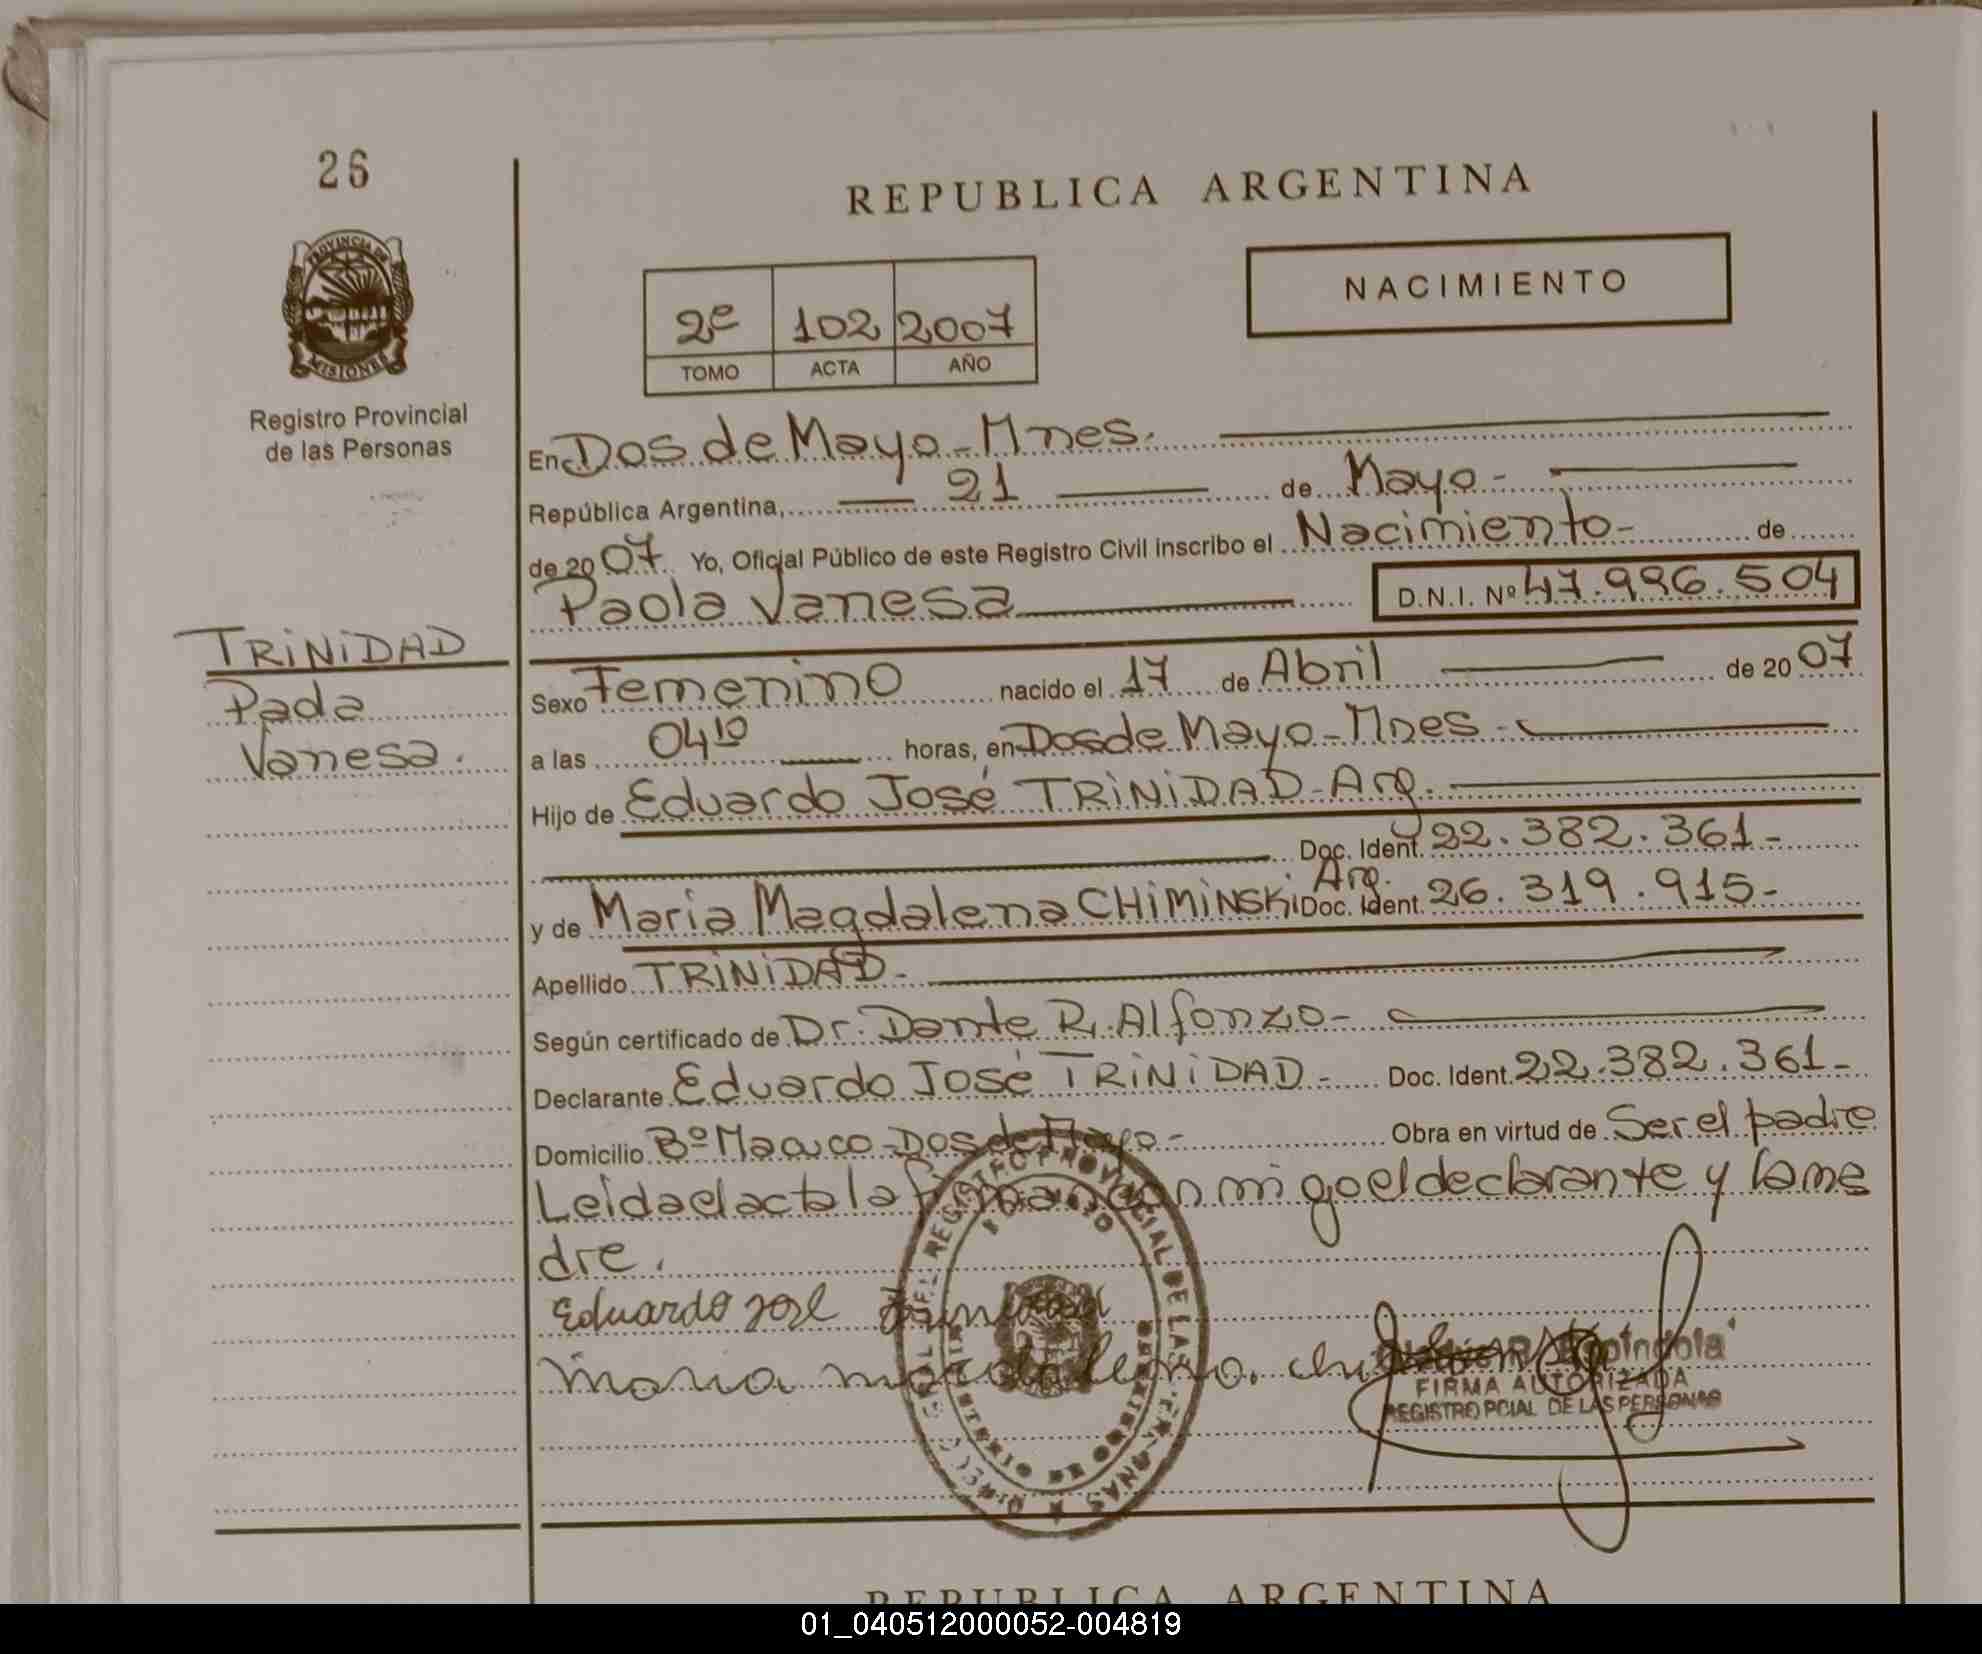 26
PROVINCIA DE
MISIONES
Registro Provincial
de las Personas
TRINIDAD
Paola
Vanesa.
REPUBLICA ARGENTINA
2º 102 2007
TOMO ACTA AÑO
NACIMIENTO
En Dos de Mayo - Mnes.
República Argentina, 21 de Mayo -
de 2007 Yo, Oficial Público de este Registro Civil inscribo el Nacimiento - de
Paola Vanesa D.N.I. Nº 47.996.504
Sexo Femenino nacido el 17 de Abril de 2007
a las 04 10 horas, en Dos de Mayo - Mnes -
Hijo de Eduardo José TRINIDAD - Arg.
Doc. Ident. 22.382.361 -
Arg.
y de Maria Magdalena CHIMINSKI Doc. Ident. 26.319.915 -
Apellido TRINIDAD -
Según certificado de Dr. Dante R. Alfonzo -
Declarante Eduardo José TRINIDAD - Doc. Ident. 22.382.361 -
Domicilio Bº Dos de Mayo - Obra en virtud de Ser el padre
Leida el acta la firman con migo el declarante y la ma
dre.
Eduardo José Trinidad
Maria magdalena.
REGISTRO PROVINCIAL DE LAS
MINISTERIO DE GOBIERNO
Espindola
FIRMA AUTORIZADA
REGISTRO PCIAL DE LAS PERSONAS
REPUBLICA ARGENTINA
01_040512000052-004819